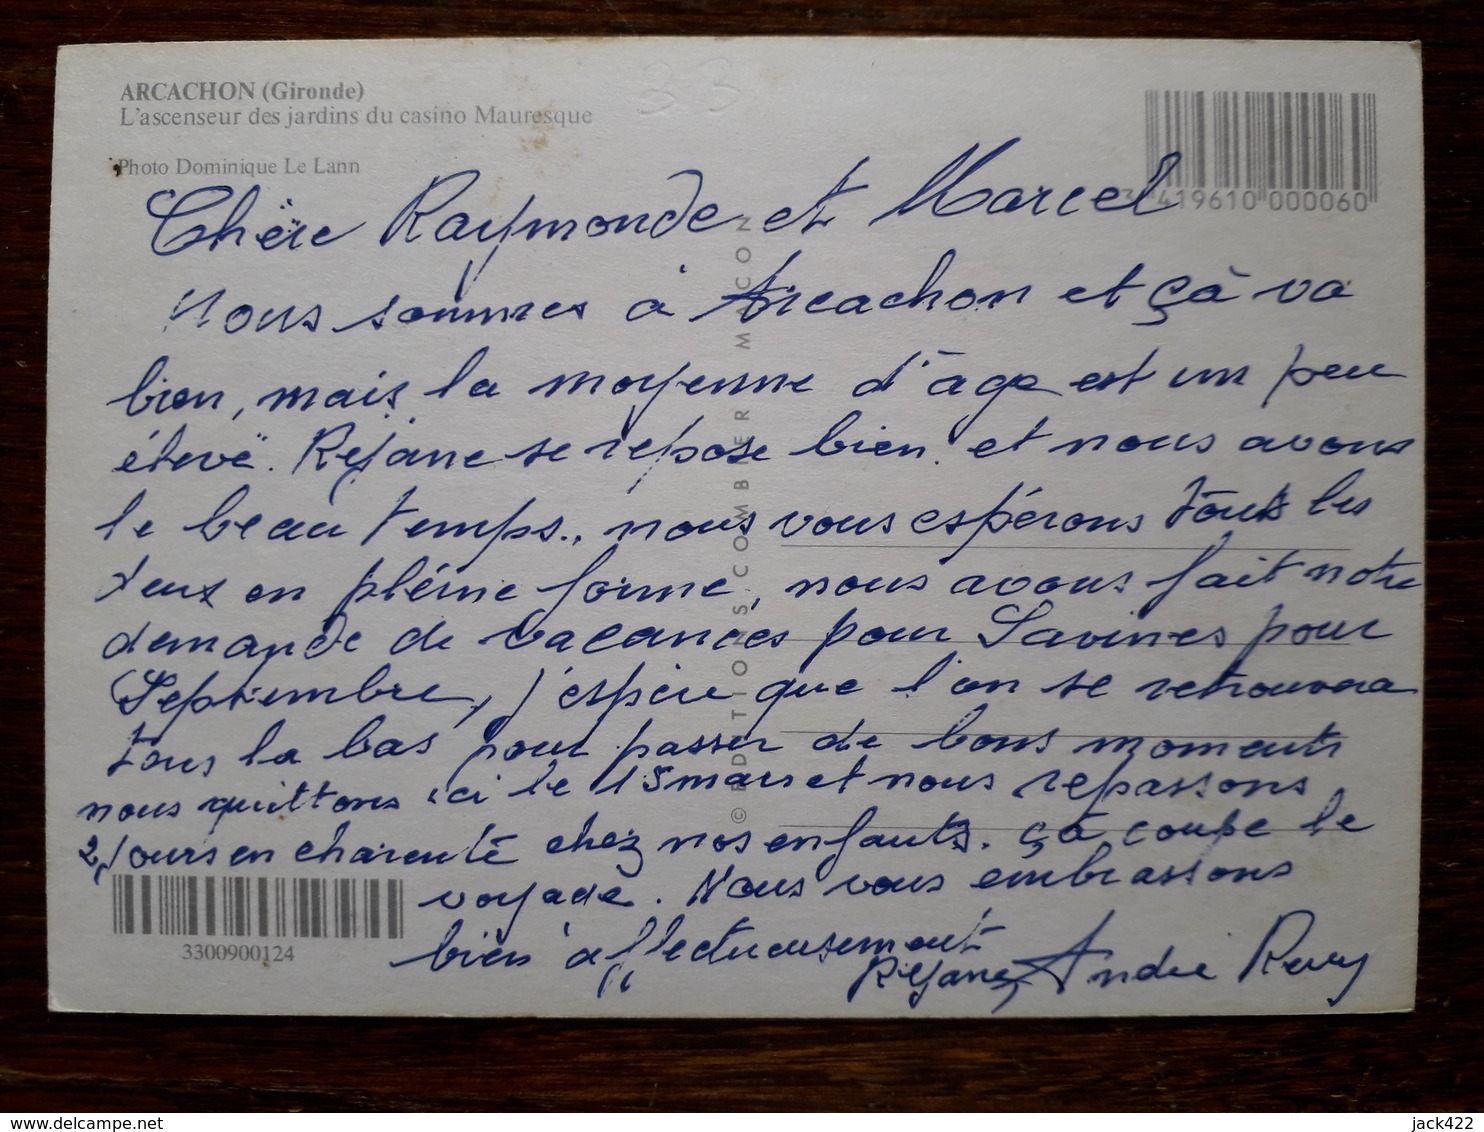 ARCACHON (Gironde)
L'ascenseur des jardins du casino Mauresque
Photo Dominique Le Lann
33
3 419610 000060
Chère Raymonde et Marcel
Nous sommes à Arcachon et çà va
bien, mais la moyenne d'âge est un peu
élevé. Réjane se repose bien. et nous avons
le beau temps., nous vous espérons tous les
deux en pléine forme, nous avons fait notre
demande de vacances pour Savines pour
Septembre, j'espère que l'on se retrouvera
tous la bas pour passer de bons moments
nous quittons ici le 15 mars et nous repassons
2 jours en charente chez nos enfants. çà coupe le
voyage. Nous vous embrassons
bien affectueusement
Réjane, André Remy
© EDITIONS COMBIER MACON
3300900124
jack422